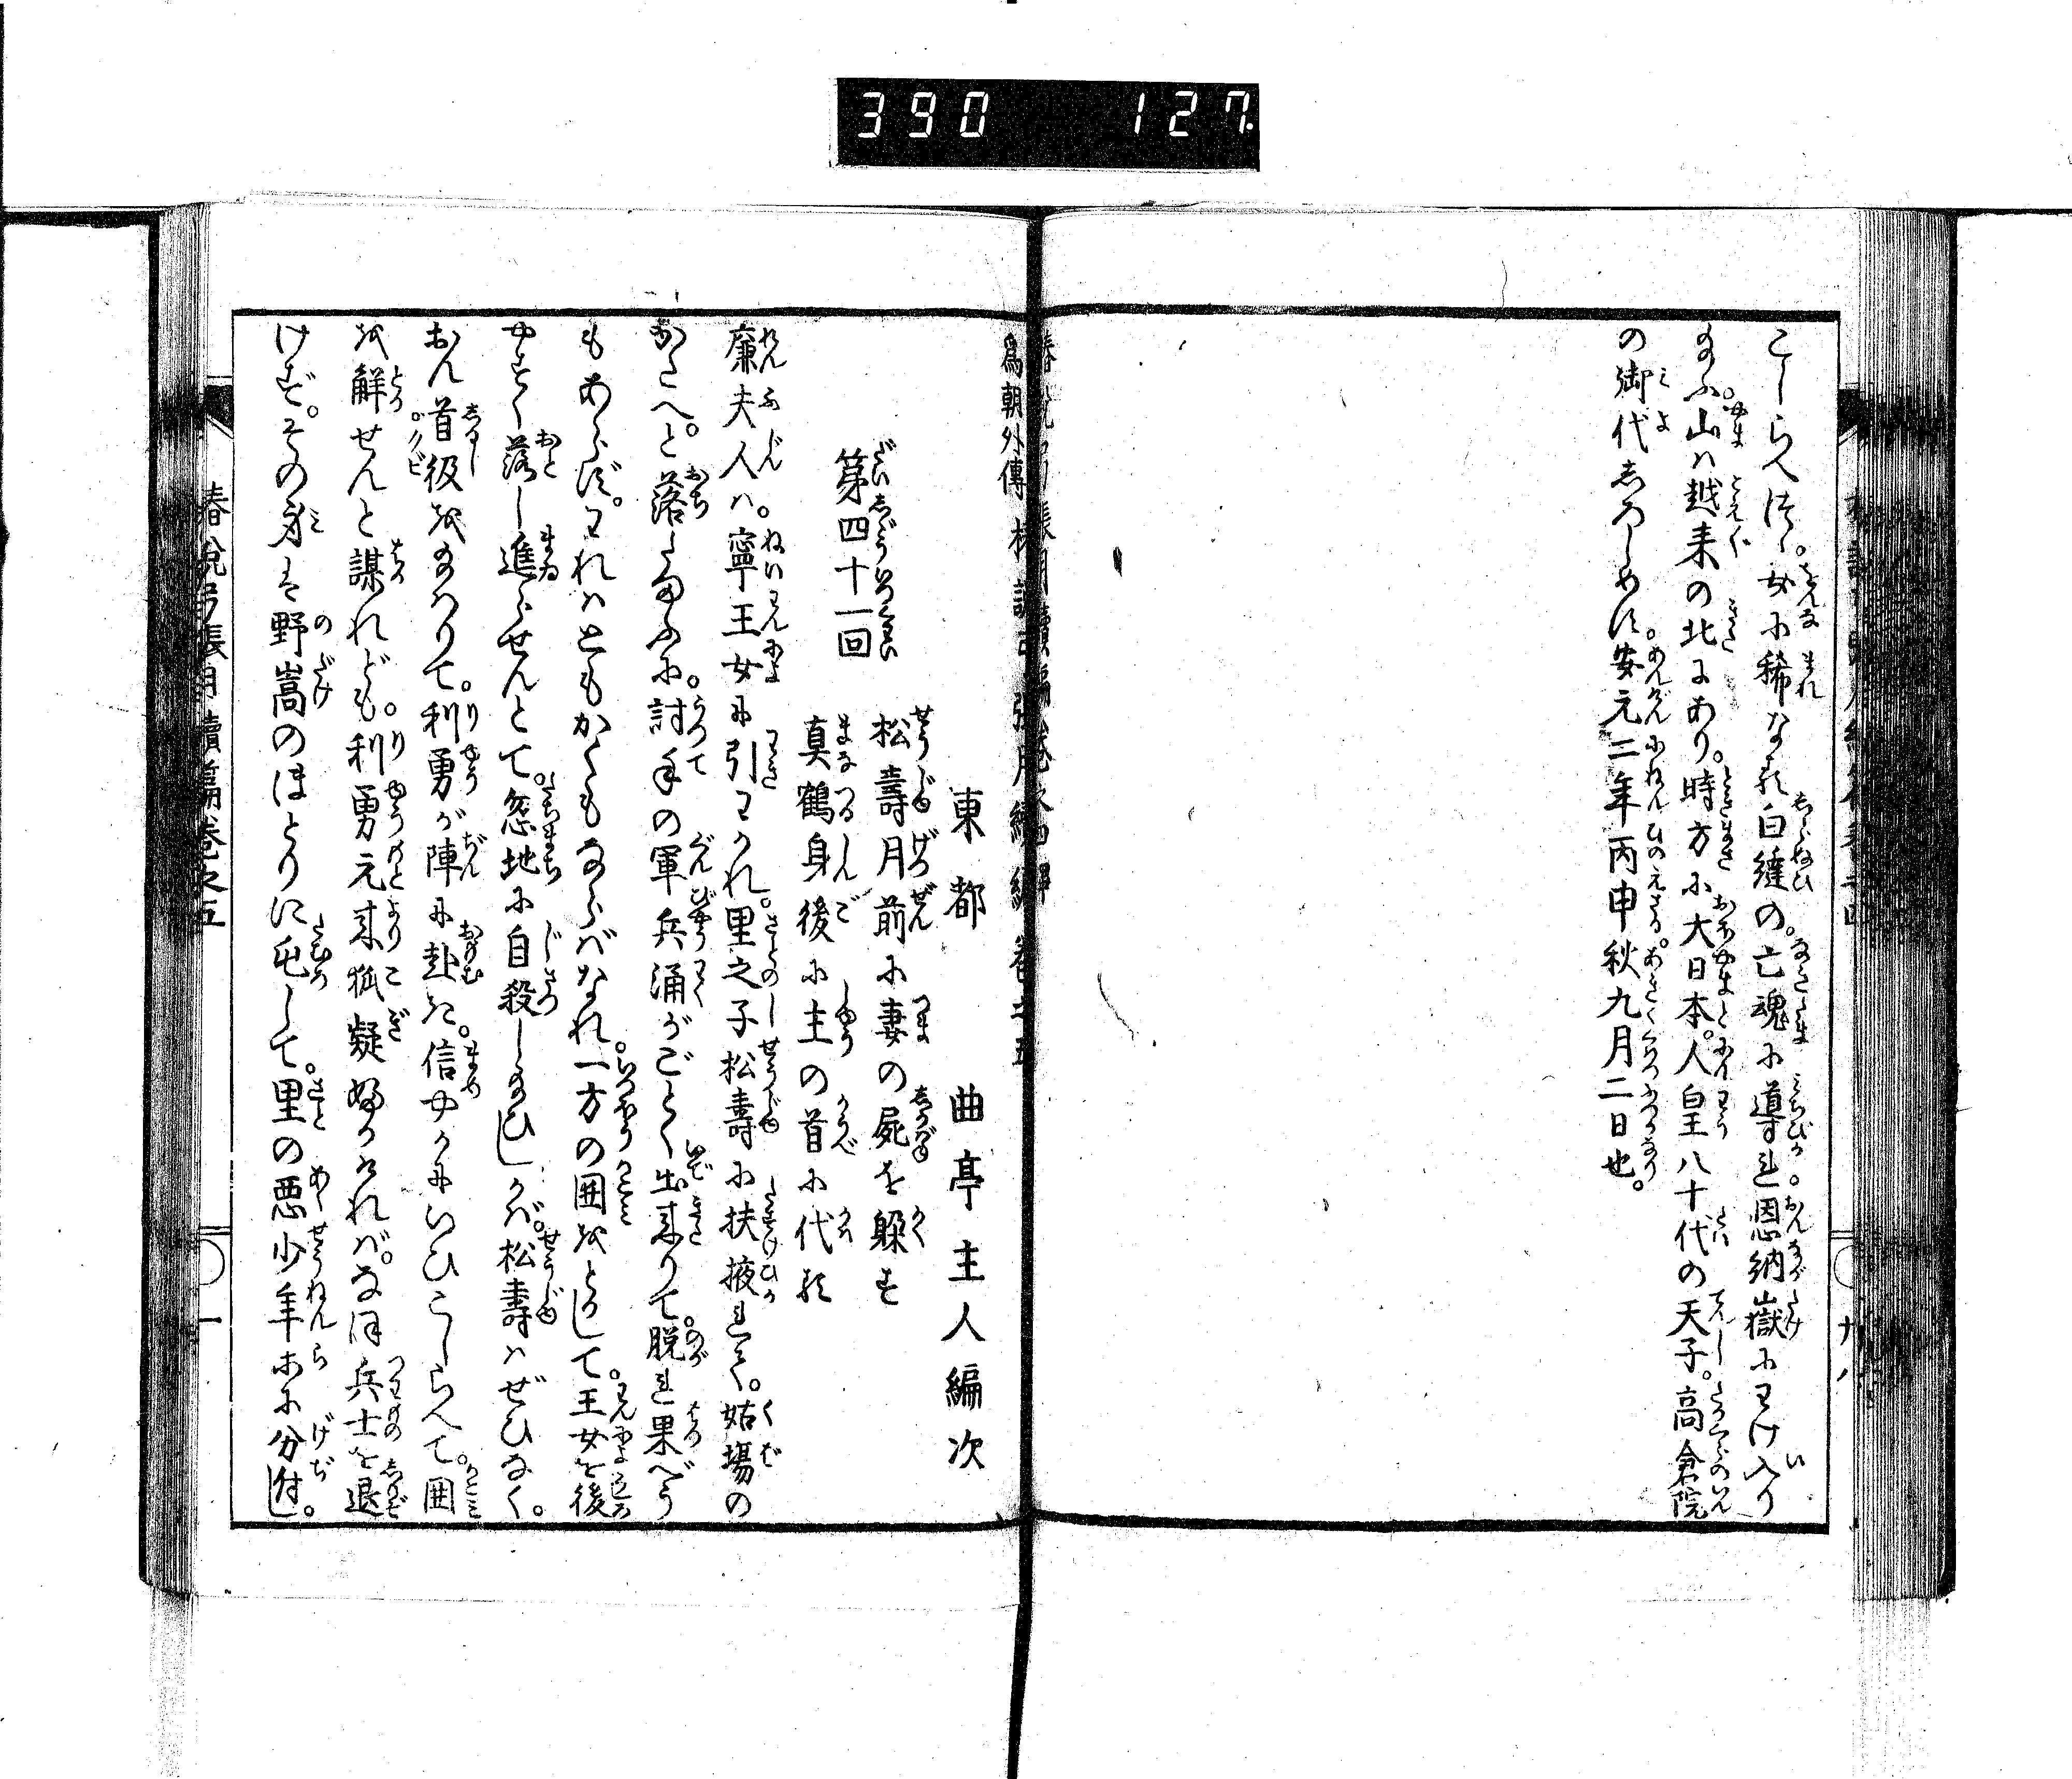 390 127.
こしらへ給ふ。女に稀なる白縫の。亡魂に導れ恩納嶽にわけ入り
給ふ。山は越来の北にあり。時方に大日本。人皇八十代の天子。高倉院
の御代しろしめす。安元二年丙申秋九月二日也。
為朝外傳
東都 曲亭主人編次
第四十一回
松壽月前に妻の屍を躱す
真鶴身後に主の首に代る
廉夫人は。寧王女に引わかれ。里之子松壽に扶掖れて。姑場の
かたへと落たまふに。討手の軍兵涌がごとく出来りて。脱れ果べう
もあらず。われはともかくもならばなれ。一方の囲をとかして。王女を後
やすく落し進らせんとて。忽地に自殺し給ひしかば。松壽はぜひなく。
おん首級を給はりて。利勇が陣に赴き。信やかにいひこしらへて。囲
を解せんと謀れども。利勇元来狐疑ふかければ。なほ兵士を退
けず。その身は野嵩のほとりに屯して。里の悪少年等に分付し。
椿説弓張月續篇巻之五
一